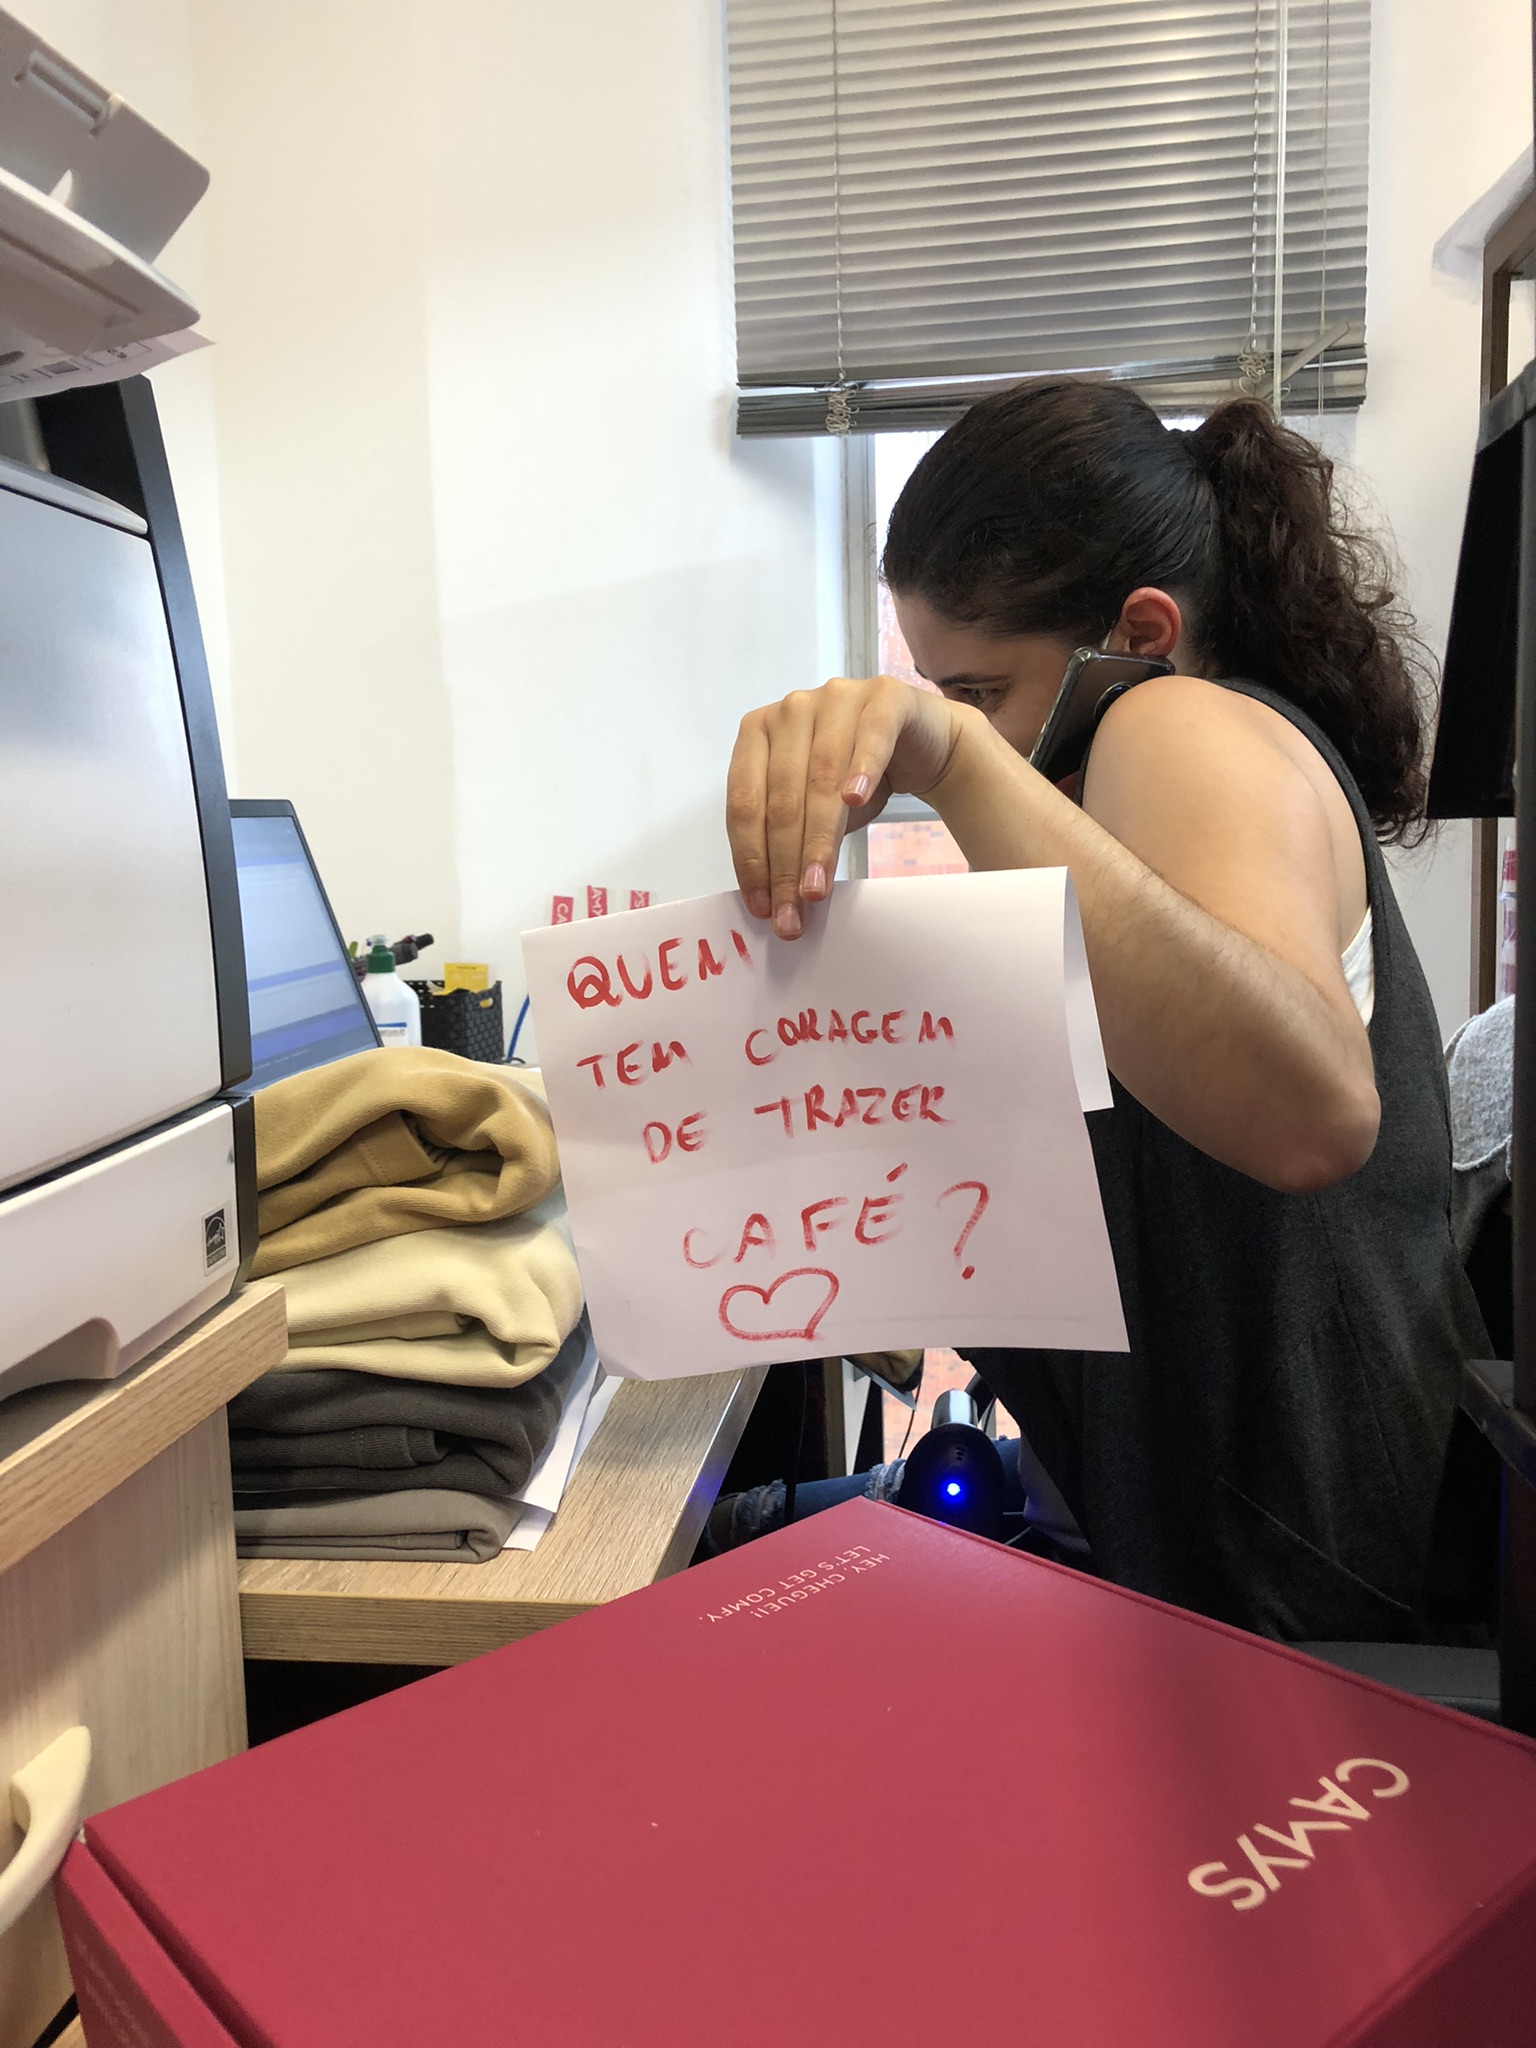 QUEM
TEM CORAGEM
DE TRAZER
CAFÉ?
HEY, CHEGUEI!
LET'S GET COMFY.
CAMYS